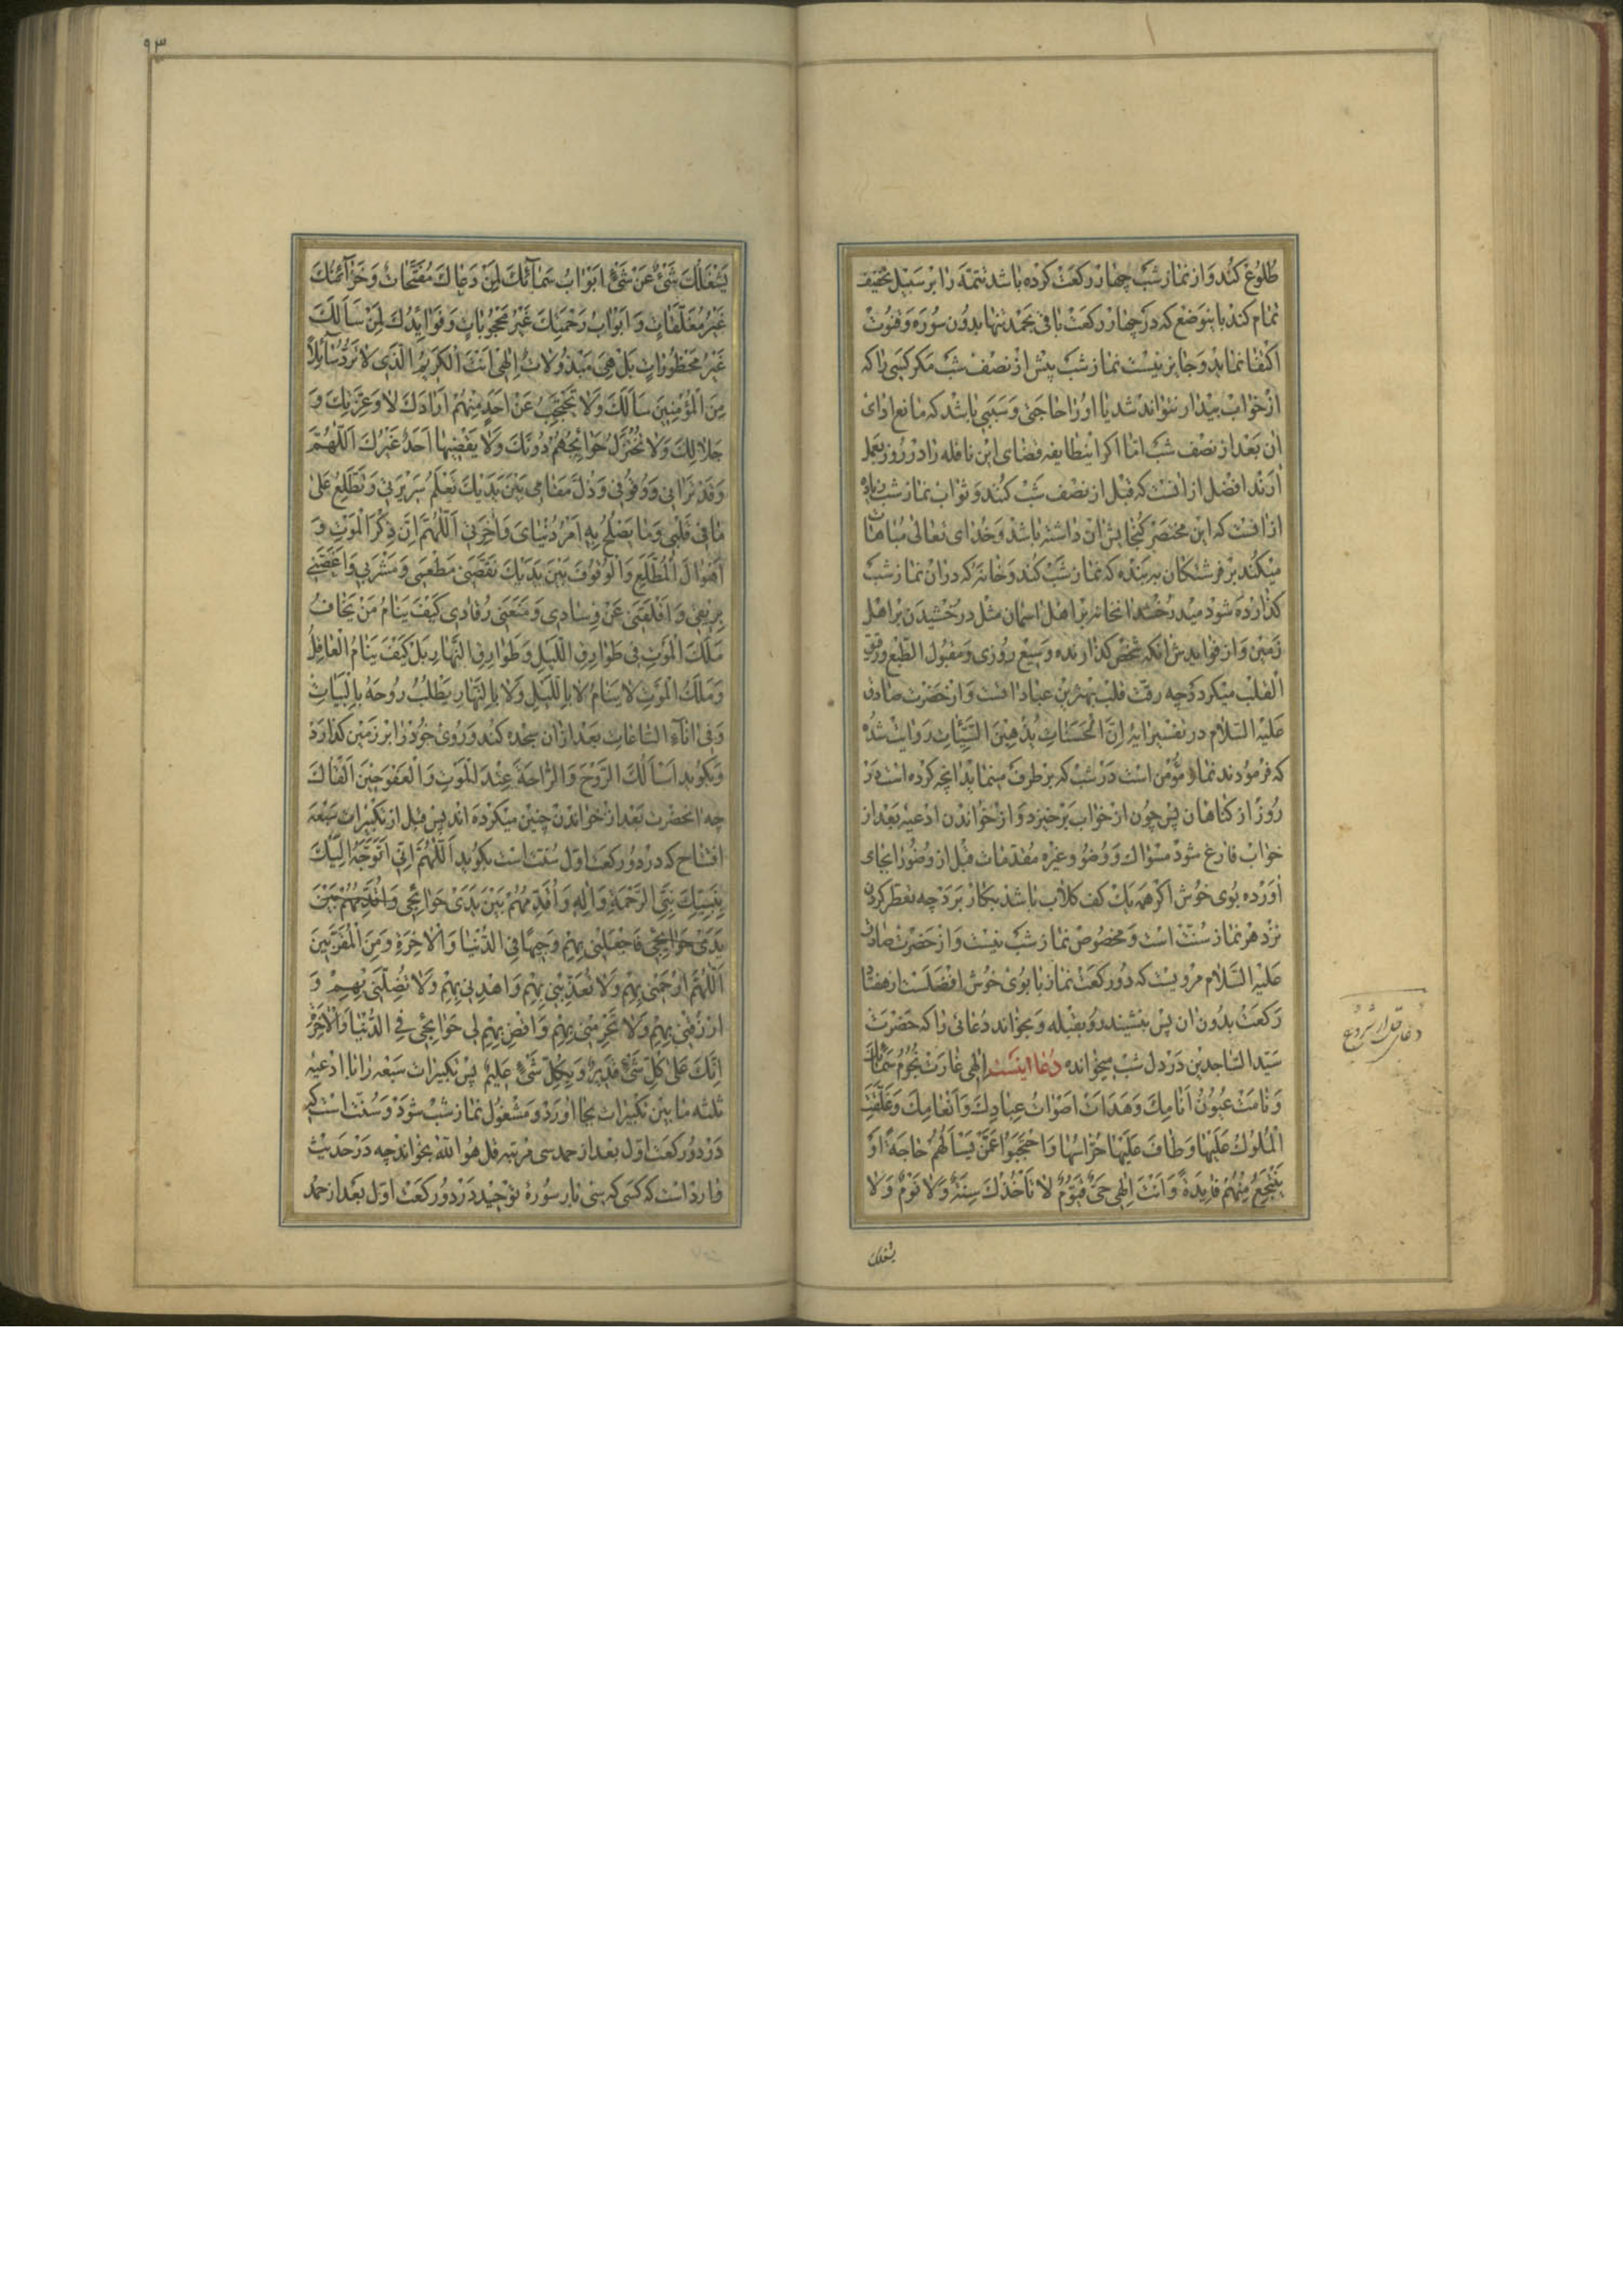 طلوع کند و از نماز شب چهار رکعت کرده باشد تتمّه را بر سبیل تخفیف
تمام کند باینوضع که در چهار رکعت باقی بحمد تنها بدون سوره و قنوت
اکتفا نماید و جایز نیست نماز شب پیش از نصف شب مکر کسی را که
از خواب بیدار نتواند شد یا او را حاجتی و سببی باشد که مانع ادای
ان بعد از نصف شب اما اکر اینطایفه قضای این نافله را در روز بعمل
ارند افضل از انست که قبل از نصف شب کنند و ثواب نماز شب زیاده
از انست که این مختصر کنجایش ان داشته باشد و خدای تعالی مباهات
میکند بر فرشتکان به بنده که نماز شب کند و خانهٔ که در ان نماز شب
کذارده شود میدرخشد انخانه بر اهل اسمان مثل درخشیدن بر اهل
زمین و از فوایدش انکه شخص کذارنده وسیع روزی و مقبول الطّبع و رقیق
القلب میکردد چه رقّت قلب بهترین عبادا تست و از حضرت صادق
علیه السّلام در تفسیر ایه اِنَّ الْحَسَنَاتِ یُذْهِبْنَ السَّیِّئاتِ روایت شده
که فرمودند نماز مؤمن است در شب که بر طرف مینماید انچه کرده است در
روز از کناهان پس چون از خواب برخیزد و از خواندن ادعیه بعد از
خواب فارغ شود مسواک و وضو و غیره مقدمات قبل از وضو را بجای
اورده بوی خوش اکر همه یک کف کلاب باشد بکار برد چه تعطر کردن
نزد هر نماز سنّت است و مخصوص نماز شب نیست و از حضرت صادق
علیه السّلام مرویست که دو رکعت نماز با بوی خوش افضلست از هفتاد
رکعت بدون ان پس بنشیند رو بقبله و بخواند دعائی را که حضرت
سیّد السّاجدین در دل شب میخوانده دعا اینست اِلٰهی غارَتْ نُجُومُ سَمائِکَ
وَنامَتْ عُیُونُ اَنامِکَ وَهَدَاَتْ اَصْواتُ عِبادِکَ وَاَنْعامِکَ وَغَلَّقَتِ
الْمُلُوکُ عَلَیْها وَطافَ عَلَیْها حُرّاسُها وَاحْتَجَبُوا عَمَّنْ یَسْاَلُهُمْ حاجَةً اَوْ
یَنْتَجِعُ مِنْهُمْ فایِدَةً وَاَنْتَ اِلٰهی حَیٌّ قَیُّومٌ لا تَاْخُذُکَ سِنَةٌ وَلا نَوْمٌ وَلا
یشغلک
دعای قبل از شروع
۹۳
یَشْغَلُکَ شَیْءٌ عَنْ شَیْءٍ اَبْوابُ سَمآئِکَ لِمَنْ دَعاکَ مُفَتَّحاتٌ وَخَزآئِنُکَ
غَیْرُ مُغَلَّقاتٍ وَاَبْوابُ رَحْمَتِکَ غَیْرُ مَحْجُوباتٍ وَفَوایِدُکَ لِمَنْ سَاَلَکَ
غَیْرُ مَحْظُوراتٍ بَلْ هِیَ مَبْذُولاتٌ اِلٰهی اَنْتَ الْکَریمُ الَّذی لا تَرُدُّ سآئِلاً
مِنَ الْمُؤْمِنینَ سَاَلَکَ وَلا تَحْتَجِبُ عَنْ اَحَدٍ مِنْهُمْ اَرادَکَ لا وَعِزَّتِکَ وَ
جَلالِکَ وَلا تُخْتَزَلُ حَوائِجُهُمْ دُونَکَ وَلا یَقْضیها اَحَدٌ غَیْرُکَ اَللّٰهُمَّ
وَقَدْ تَرانی وَوُقُوفی وَذُلَّ مَقامی بَیْنَ یَدَیْکَ تَعْلَمُ سَریرَتی وَتَطَّلِعُ عَلیٰ
ما فی قَلْبی وَما یَصْلُحُ بِهِ اَمْرُ دُنْیایَ وَاٰخِرَتی اَللّٰهُمَّ اِنَّ ذِکْرَ الْمَوْتِ وَ
اَهْوالَ الْمُطَّلَعِ وَالْوُقُوفَ بَیْنَ یَدَیْکَ نَغَّصَنی مَطْعَمی وَمَشْرَبی وَاَغَصَّنی
بِریقی وَاَقْلَقَنی عَنْ وِسادی وَمَنَعَنی رُقادی کَیْفَ یَنامُ مَنْ یَخافُ
مَلَکَ الْمَوْتِ فی طَوارِقِ اللَّیْلِ وَطَوارِقِ النَّهارِ بَلْ کَیْفَ یَنامُ الْعاقِلُ
وَمَلَکُ الْمَوْتِ لا یَنامُ لا بِاللَّیْلِ وَلا بِالنَّهارِ یَطْلُبُ رُوحَهُ بِالْبَیاتِ
وَفی اٰنآءِ السّاعاتِ بعد از ان سجده کند و روی خود را بر زمین کذارد
و بکوید اَسْاَلُکَ الرَّوْحَ وَالرّاحَةَ عِنْدَ الْمَوْتِ وَالْعَفْوَ حینَ اَلْقاکَ
چه انحضرت بعد از خواندن چنین میکرده اند پس قبل از تکبیرات سبعه
افتتاح که در دو رکعت اول سنّت است بکوید اَللّٰهُمَّ اِنّی اَتَوَجَّهُ اِلَیْکَ
بِنَبِیِّکَ نَبِیِّ الرَّحْمَةِ وَاٰلِهِ وَاُقَدِّمُهُمْ بَیْنَ یَدَیْ حَوائِجی وَاُقَدِّمُهُمْ بَیْنَ
یَدَیْ حَوائِجی فَاجْعَلْنی بِهِمْ وَجیهًا فِی الدُّنْیا وَالْاٰخِرَةِ وَمِنَ الْمُقَرَّبینَ
اَللّٰهُمَّ ارْحَمْنی بِهِمْ وَلا تُعَذِّبْنی بِهِمْ وَاهْدِنی بِهِمْ وَلا تُضِلَّنی بِهِمْ وَ
ارْزُقْنی بِهِمْ وَلا تَحْرِمْنی بِهِمْ وَاقْضِ بِهِمْ لی حَوائِجی فِی الدُّنْیا وَالْاٰخِرَةِ
اِنَّکَ عَلیٰ کُلِّ شَیْءٍ قَدیرٌ وَبِکُلِّ شَیْءٍ عَلیمٌ پس تکبیرات سبعه را با ادعیه
ثلثه مابین تکبیرات بجا اورد و مشغول نماز شب شود و سنّت است که
در دو رکعت اول بعد از حمد سی مرتبه قل هو اللّه بخواند چه در حدیث
وارد است که کسی که سی بار سورهٔ توحید در دو رکعت اول بعد از حمد